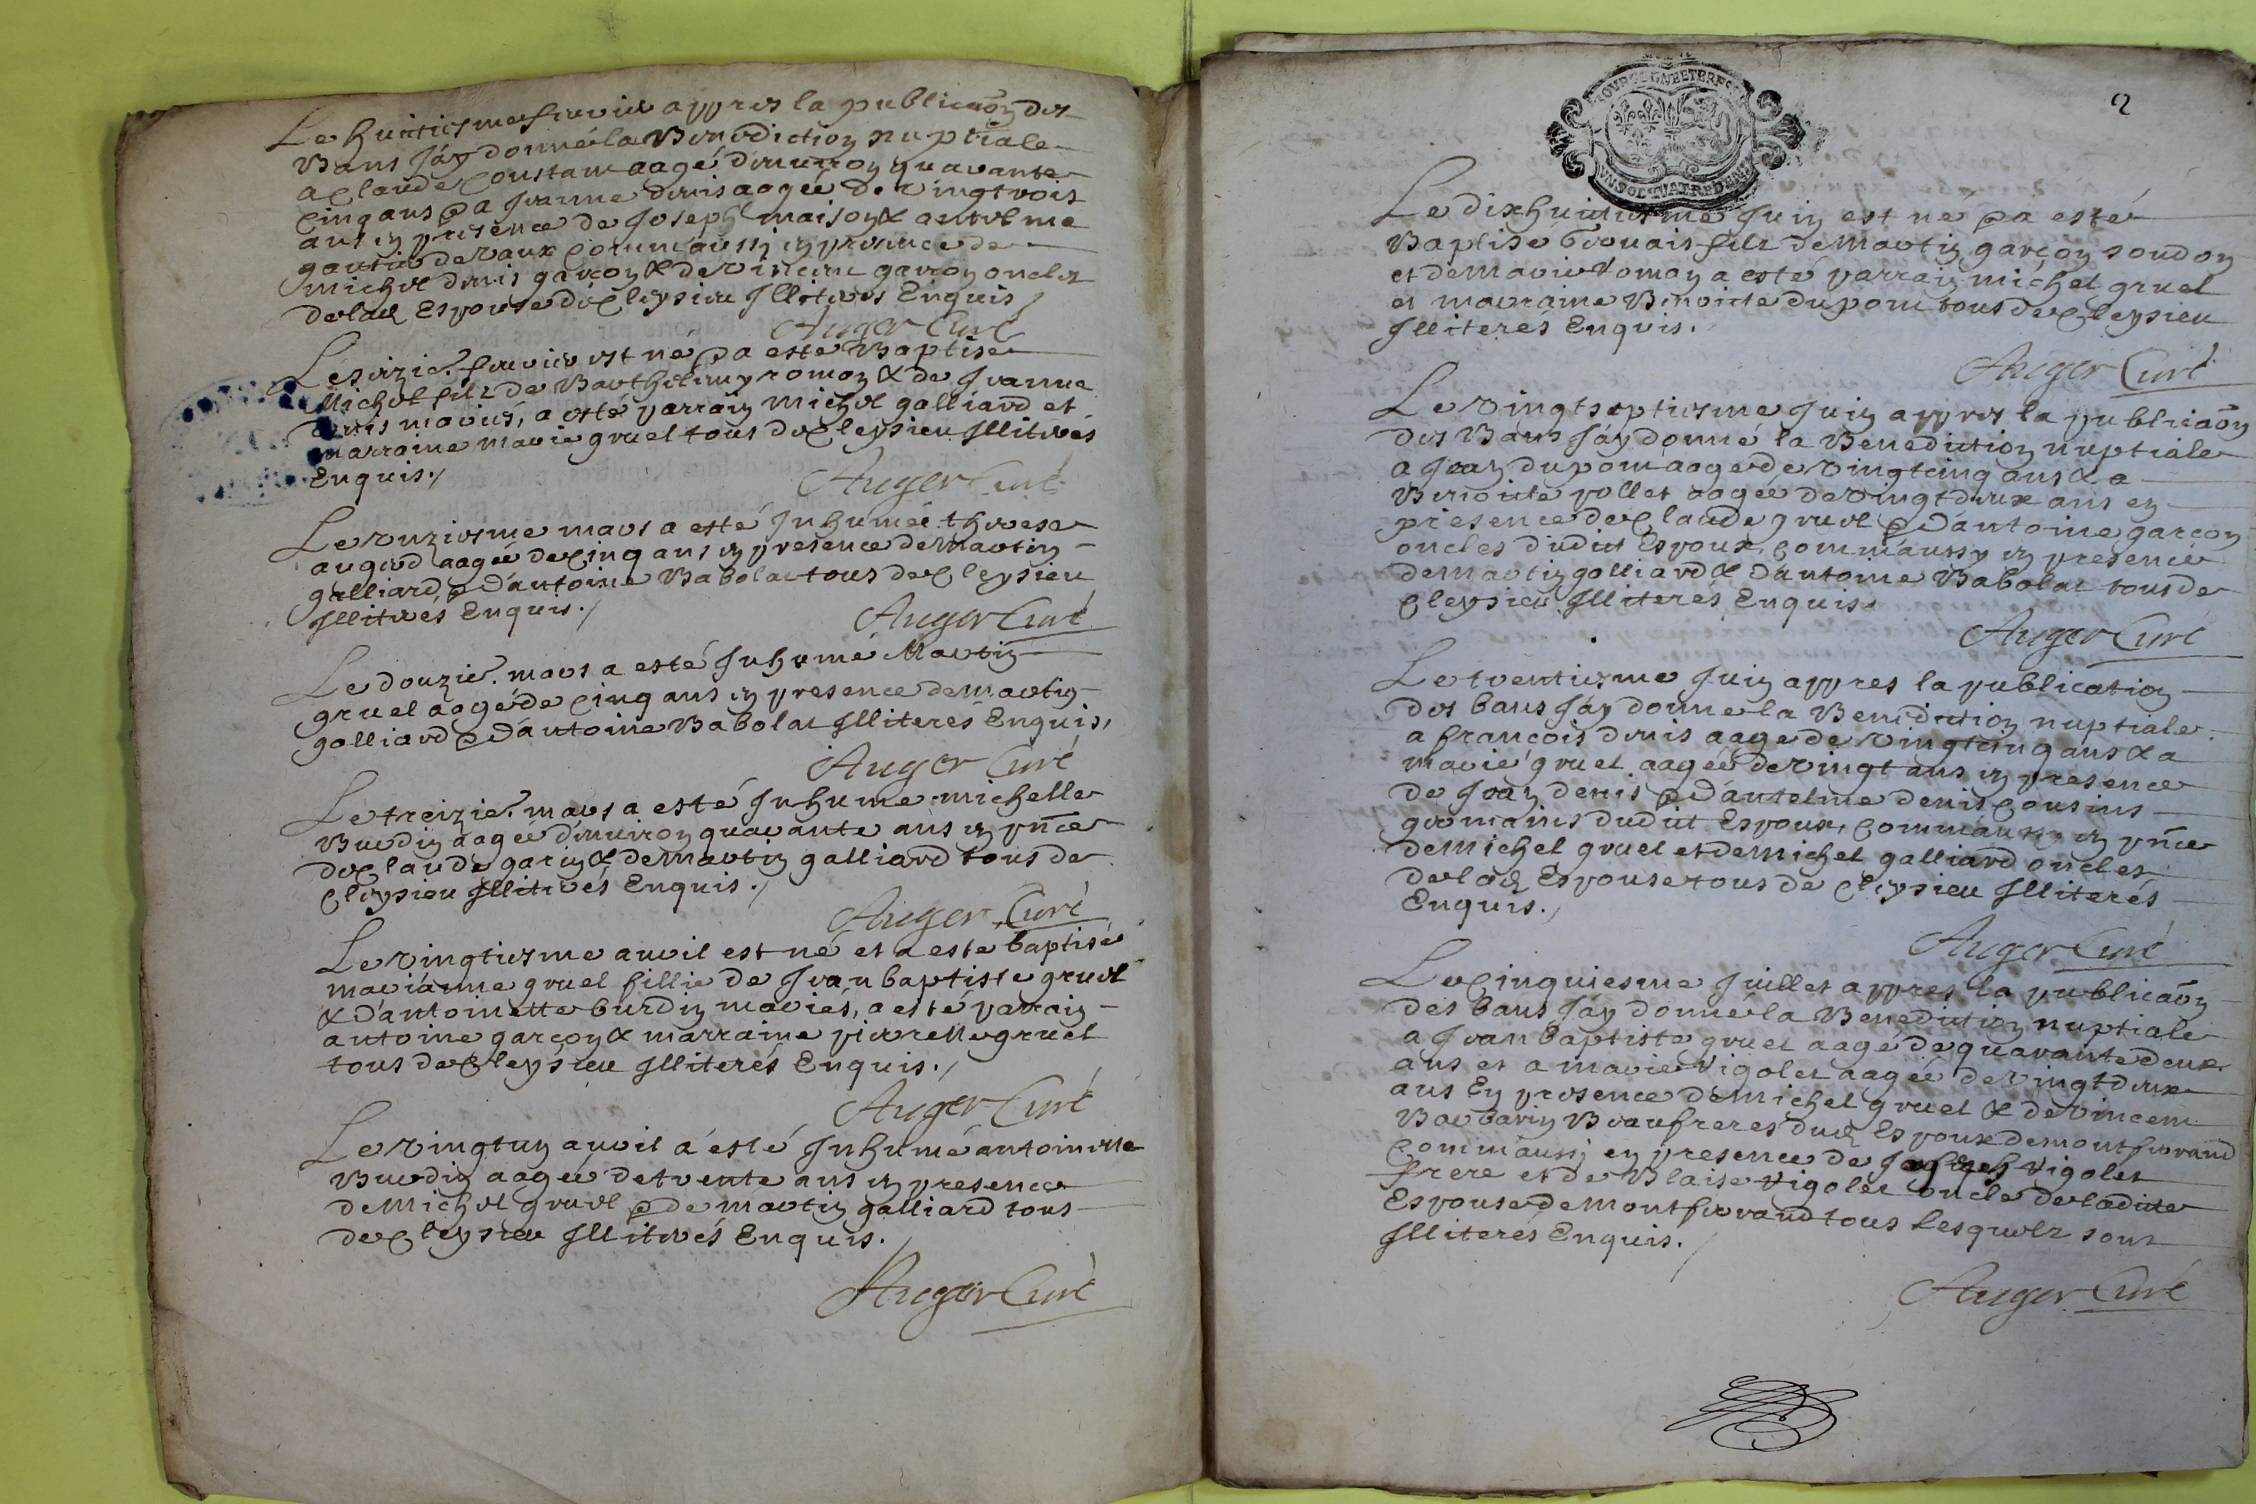 Le huictiesme fevrier appres la publicaõn des
Bans J'ay donné la Benediction nuptiale
a Claude Constant aagé d'environ quarante
cinq ans & a Jeanne denis aagée de vingt trois
ans en presence de Joseph maison & antelme
gautier de vaux comm'aussi en presence de
michel denis garçon & de vincent garçon oncles
de lad Espouse de Cleysieu Illiterés Enquis
Auger Curé
Le seizie. fevrier est né & a esté Baptisé
Michel filz de Barthelemy romon & de Jeanne
denis mariés, a esté parrain michel galliard et
marraine marie gruel tous de Cleysieu Illiterés
Enquis./
Auger Curé
Le onziesme mars a esté Inhumée therese
augerd aagée de cinq ans en presence de martin
galliard & d'antoine Babolat tous de Cleysieu
Illiterés Enquis./
Auger Curé
Le douzie. mars a esté Inhumé Martin
gruel aagé de cinq ans en presence de martin
galliard & d'antoine Babolat Illiterés Enquis,
Auger Curé
Le treizie. mars a esté Inhume michelle
Burdin aagée d'environ quarante ans en pñce
de Claude garin & de martin galliard tous de
Cleysieu Illiterés Enquis./
Auger Curé
Le vingtiesme avril est né et a esté baptisé
marianne gruel fillie de Jean baptiste gruel
& d'antoinette burdin mariés, a esté parrain
antoine garçon & marraine pierrette gruel
tous de Cleysieu Illiterés Enquis./
Auger Curé
Le vingtun avril a esté Inhumé antoinette
Burdin aagée de trente ans en presence
de Michel gruel & de martin galliard tous
de Cleysieu Illiterés Enquis./
Auger Curé
2
Le dixhuictiesme Juin est né & a esté
Baptisé francois filz de Martin garçon soudon
et de Marie roman a esté parrain michel gruel
et marraine Benoicte dupont tous de Cleysieu
Illiterés Enquis.
Auger Curé
Le vingtseptiesme Juin appres la publicaõn
des Bans J'ay donné la Benediction nuptiale
a Jean dupont aagé de vingtcinq ans & a
Benoicte pollet aagée de vingtdeux ans en
presence de Claude gruel & d'antoine garçon
oncles dudict Espoux, comm'aussy en presence
de martin galliard & d'antoine Babolat tous de
Cleysieu Illiterés Enquis.
Auger Curé
Le trentiesme Juin appres la publication
des bans J'ay donné la Benediction nuptiale
a francois denis aagé de vingtcinq ans & a
marie gruel aagée de vingt ans en presence
de Jean denis & d'antelme denis cousins
germains dudict Espoux, comm'aussi en pñce
de Michel gruel et de Michel galliard oncles
de lad Espouse tous de Cleysieu Illiterés
Enquis./
Auger Curé
Le Cinquiesme Juillet appres la publicaõn
des bans J'ay donné la Benediction nuptiale
a Jean baptiste gruel aagé de quarante deux
ans et a marie vigolet aagée de vingtdeux
ans En presence de Michel gruel & de vincent
Barbarin Beaufreres dud Espoux de montferrand
comm'aussi en presence de vigolet
frere et de Blaise vigolet oncle de ladicte
Espouse de Montferrand tous Lesquelz sont
Illiterés Enquis./
Auger Curé